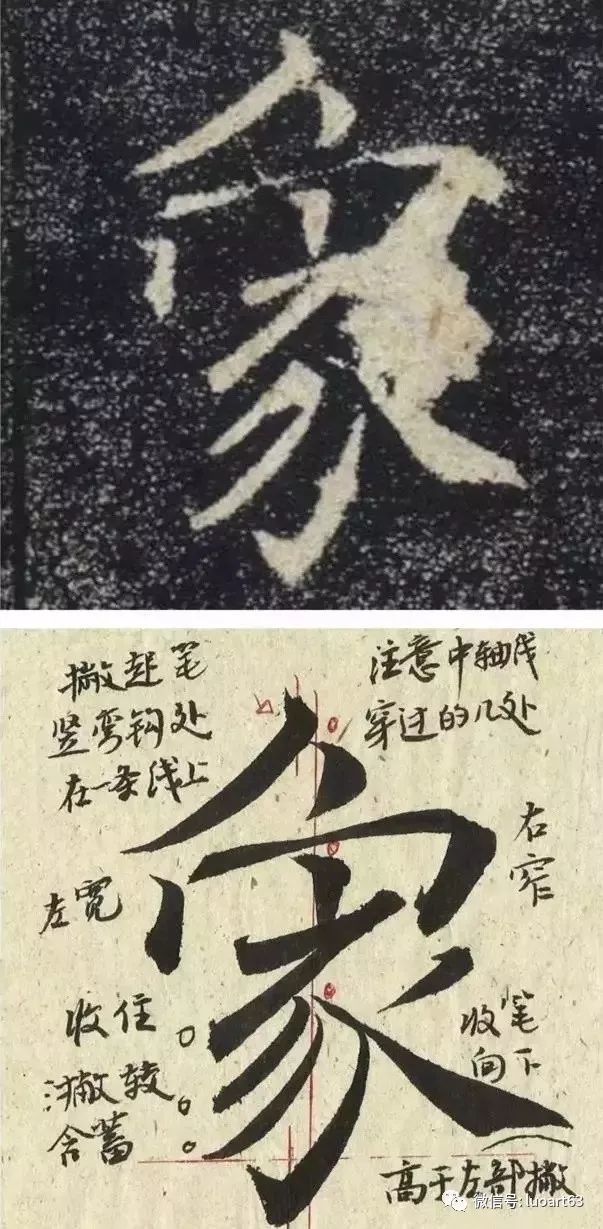 象
撇起笔
竖弯钩处
在一条线上
注意中轴线
穿过的几处
象
左宽
右窄
收住
三撇较
含蓄
收笔
向下
高于左部撇
微信号: luoart63